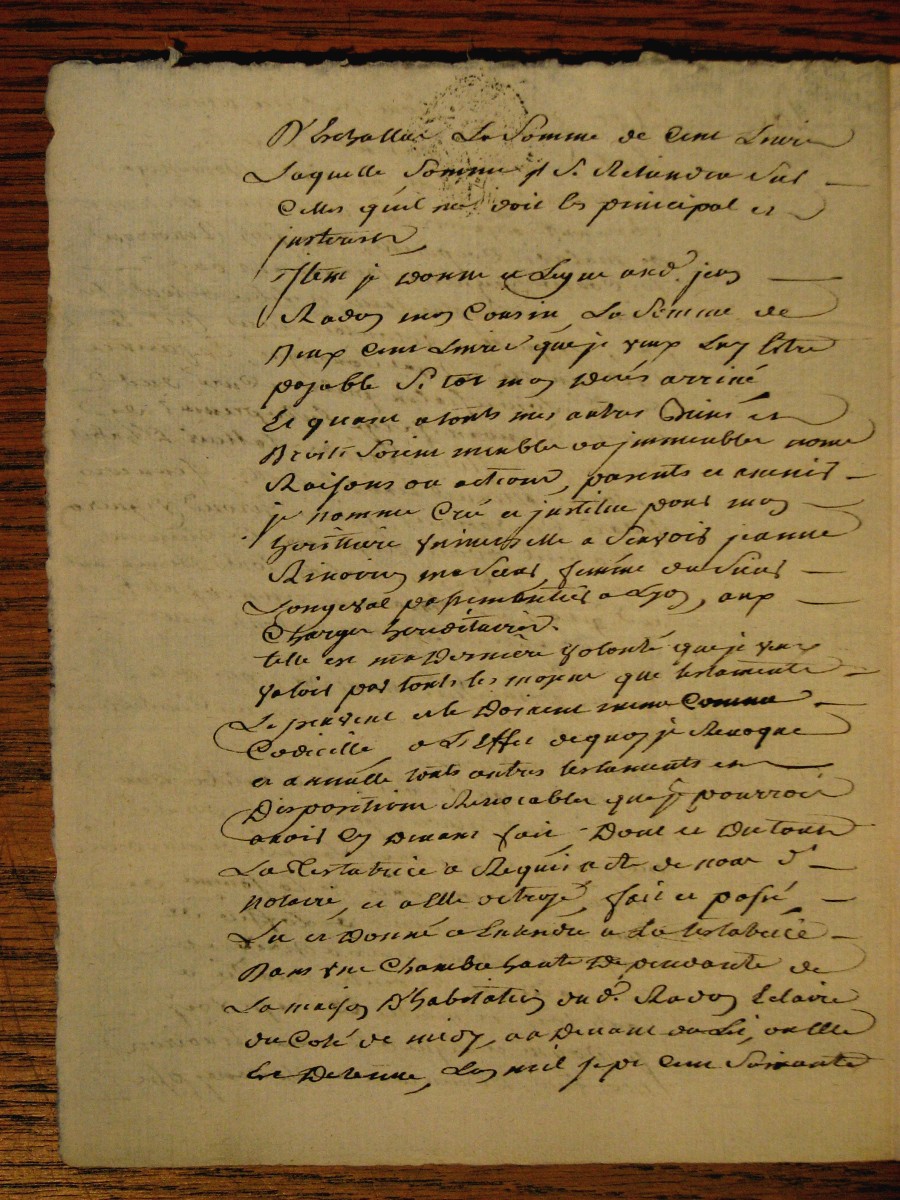 D'Echallas La Somme de Cent Livres
Laquelle Somme je Se Retiendra Sur
Celles quil me doit les principal et
jnterests,
jtem je donne et Legue aud. jean
Radon mon Cousin La Somme de
Deux Cent Livres que je veux Luy Etre
payable Si tot mon deces arrivé
Et quant a touts mes autres Biens et
Droits Soient meubles ou jmmeubles noms
Raisons ou actions, parents et amis
je nomme Cré et jnstitue pour mon
heritiere universelle a Scavoir jeanne
ma Seur, femme du Sieur
Longeval passementier a Lyon, aux
Charges hereditaires.
telle est ma Derniere volonté que je veux
valoir par touts les moyens que testaments
Le peuvent et le Doivent meme Comme
Codicille, a L'Effet de quoy je Revoque
et annulle touts autres testaments et
Dispositions Revocables que je pourrois
avoir Cy Devant fait. Dont et Du tout
La Testatrice a Requis acte de nous d.
notaire, et a Elle octroyé, fait et passé
Lu et Donné a Entendre a La testatrice
Dans une Chambre haute Dependante de
La maison D'habitation dud. Radon Eclairé
du Coté de midy, au Devant du Lit, ou Elle
Est Detenue, L'an mil sept Cent Soixante